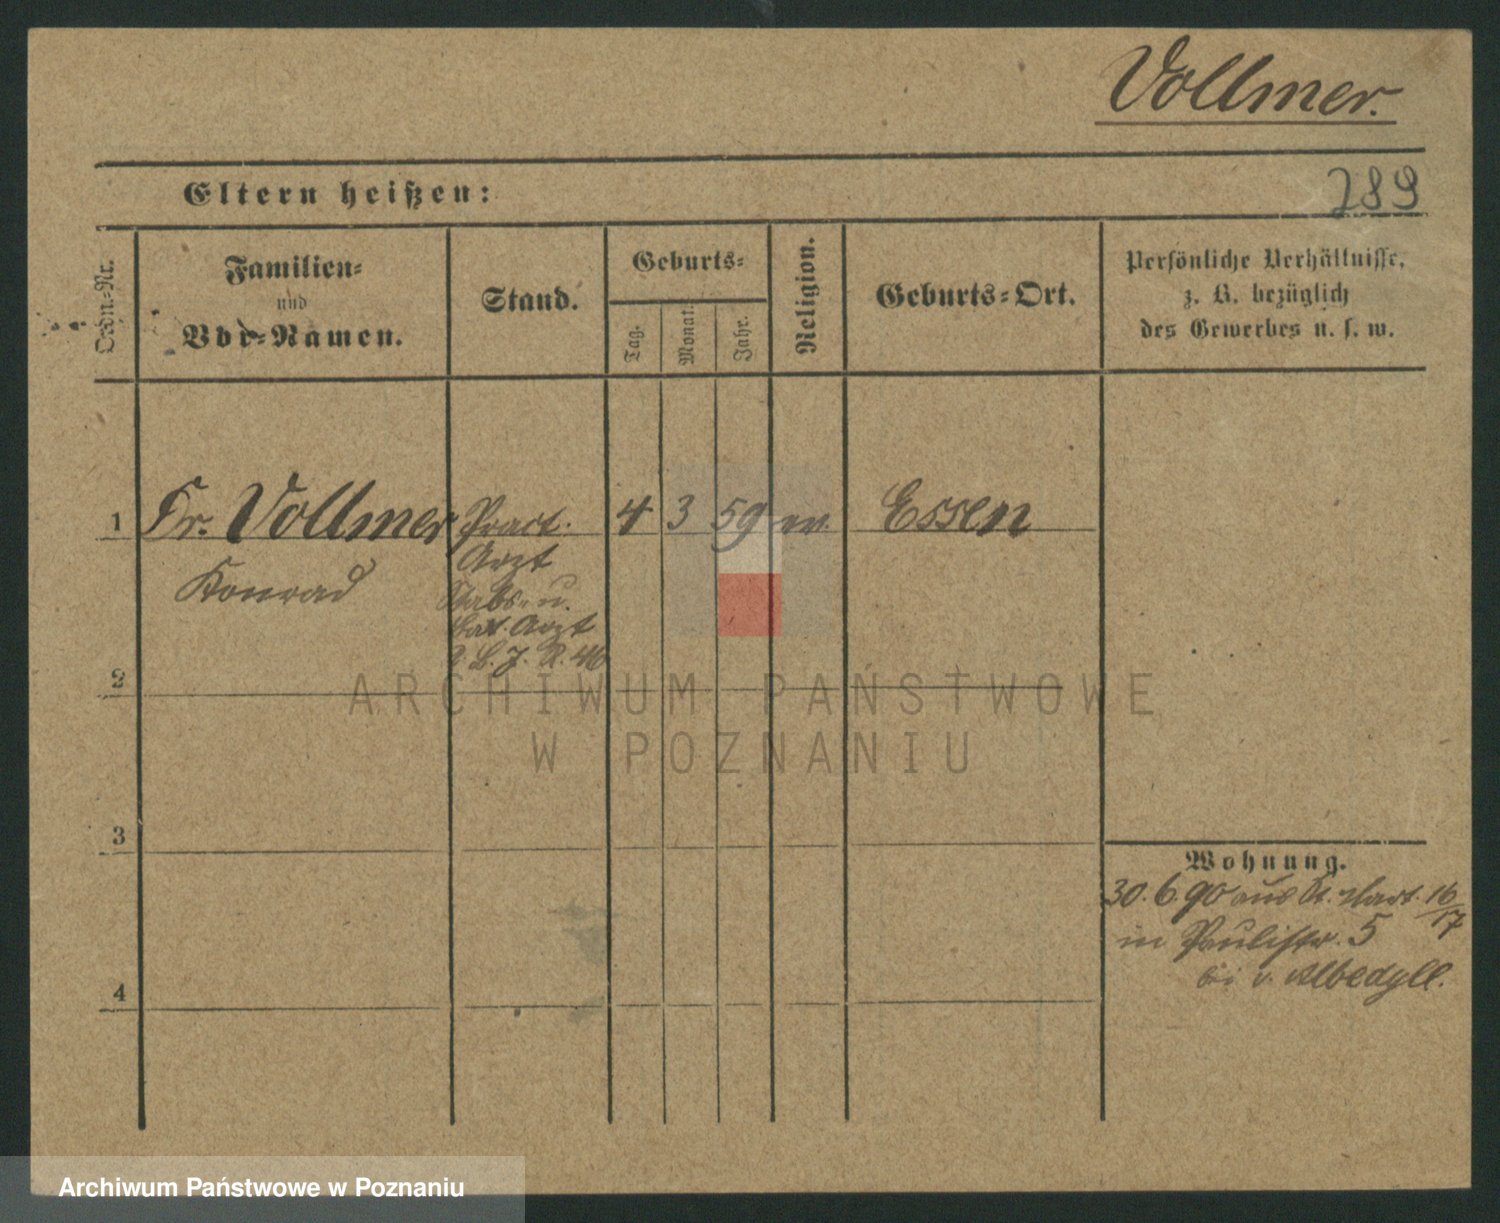 Vollmer.
789
Eltern heißen:
Ordn.-Nr.
Familien-
und
Vor-Namen.
Stand.
Geburts-
Tag.
Monat.
Jahr.
Religion.
Geburts-Ort.
Persönliche Verhältnisse,
z. B. bezüglich
des Gewerbes u. s. w.
1 Dr. Vollmer Pract. 4 3 59 ev. Essen
Konrad
Arzt
Stabs- u.
Bat. Arzt
I. R. 46
2
3
4
Wohnung.
30.6.90 aus St. Mart. 16/17
in Paulistr. 5
bei v. Albedyll.
ARCHIWUM PAŃSTWOWE
W POZNANIU
Archiwum Państwowe w Poznaniu